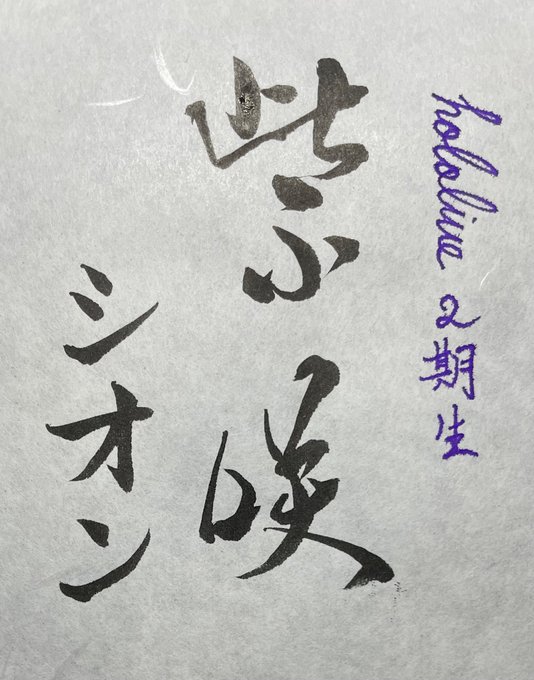 hololive 2期生
紫咲
シオン